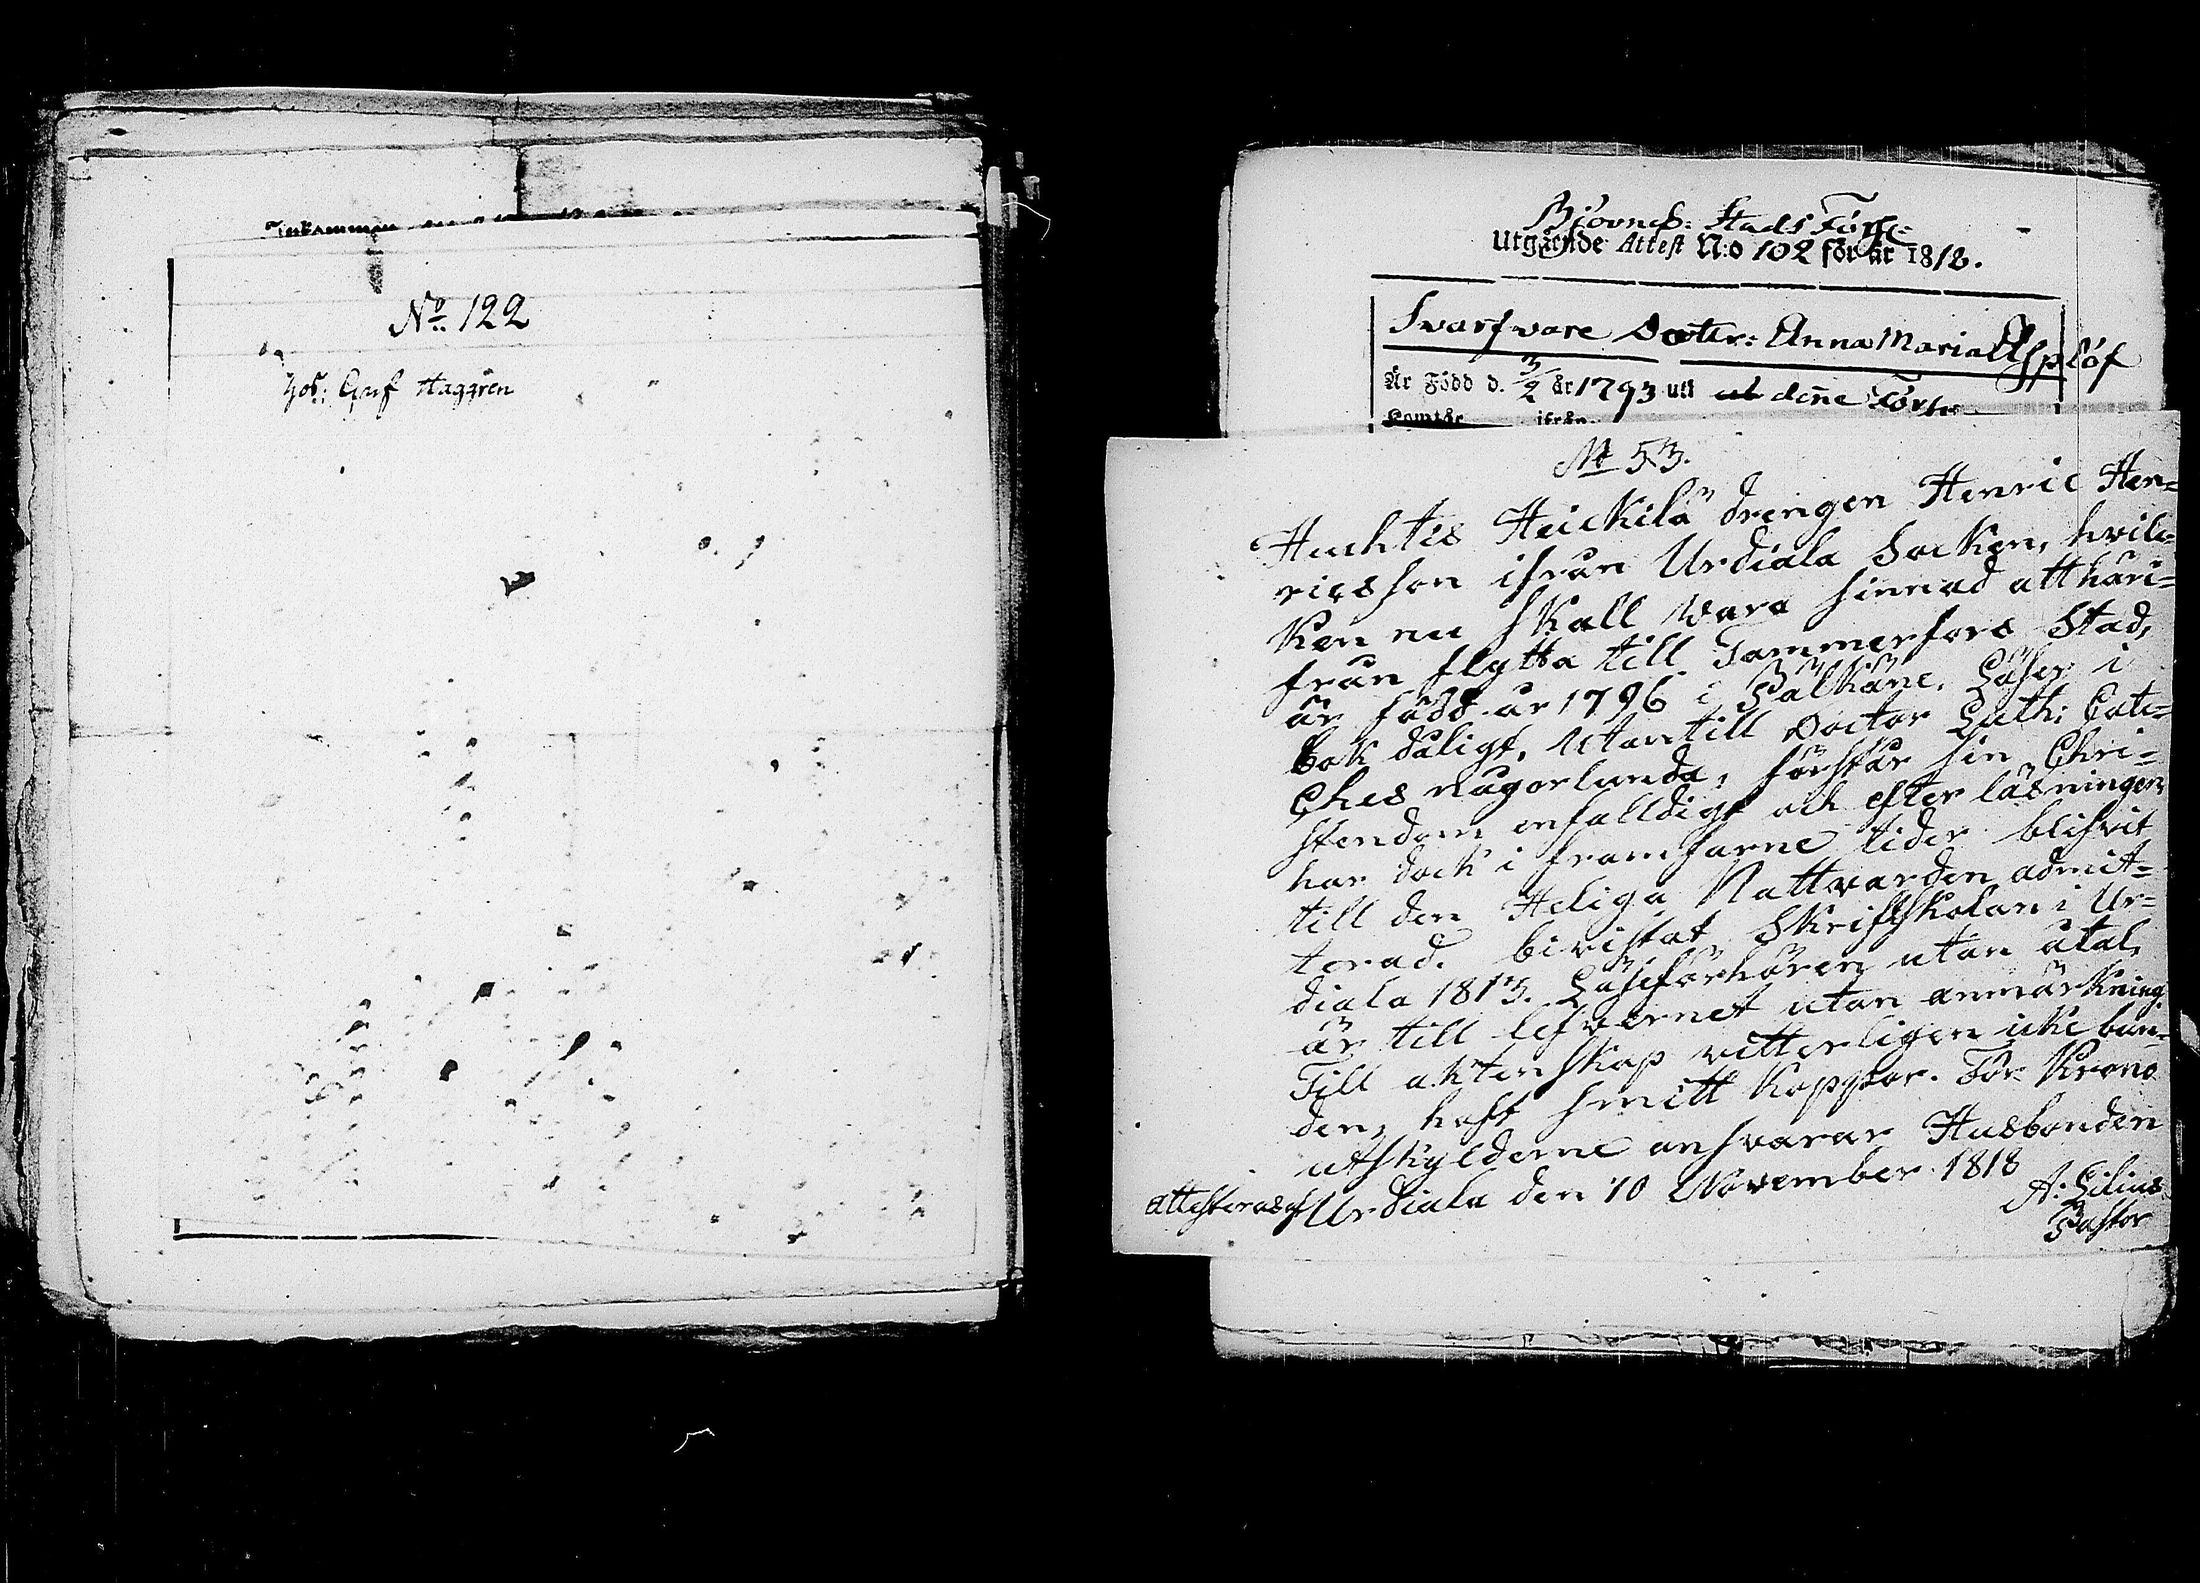 No 122
Gust Haggren
Björneb: Stads Förs:
Utgående Attest N:o 102 för år 1818.
Svarfvare Docter: Anna Maria Asplöf
Är Född d. 3/2 år 1793 uti denne Förs
Komt år ifrån
No 53.
Huchtis Heickilä drengen Henric Hen=
ricsson ifrån Urdiala Socken, hvil=
ken nu skall vara sinnad att häri=
från flytta till Tammerfors Stad,
är född år 1796 i Pälkäne. Läser i
bok dåligt, utantill Doctor Luth: Cate=
ches någorlunda, förstår sin Chri=
stendom enfalldigt och efter läsningen,
har dock i framfarne tider blifvit
till den Heliga Nattvarden admit=
terad. bivistat Skriftskolan i Ur=
diala 1813. Läseförhören utan åtal,
är till lefvernet utan anmärkning.
Till äktenskap vitterligen icke bun=
den, haft smitt koppor. För Krono
utskylderne ansvarar Husbonden
attesteras af Urdiala den 10 November 1818
A: Lilius
Pastor